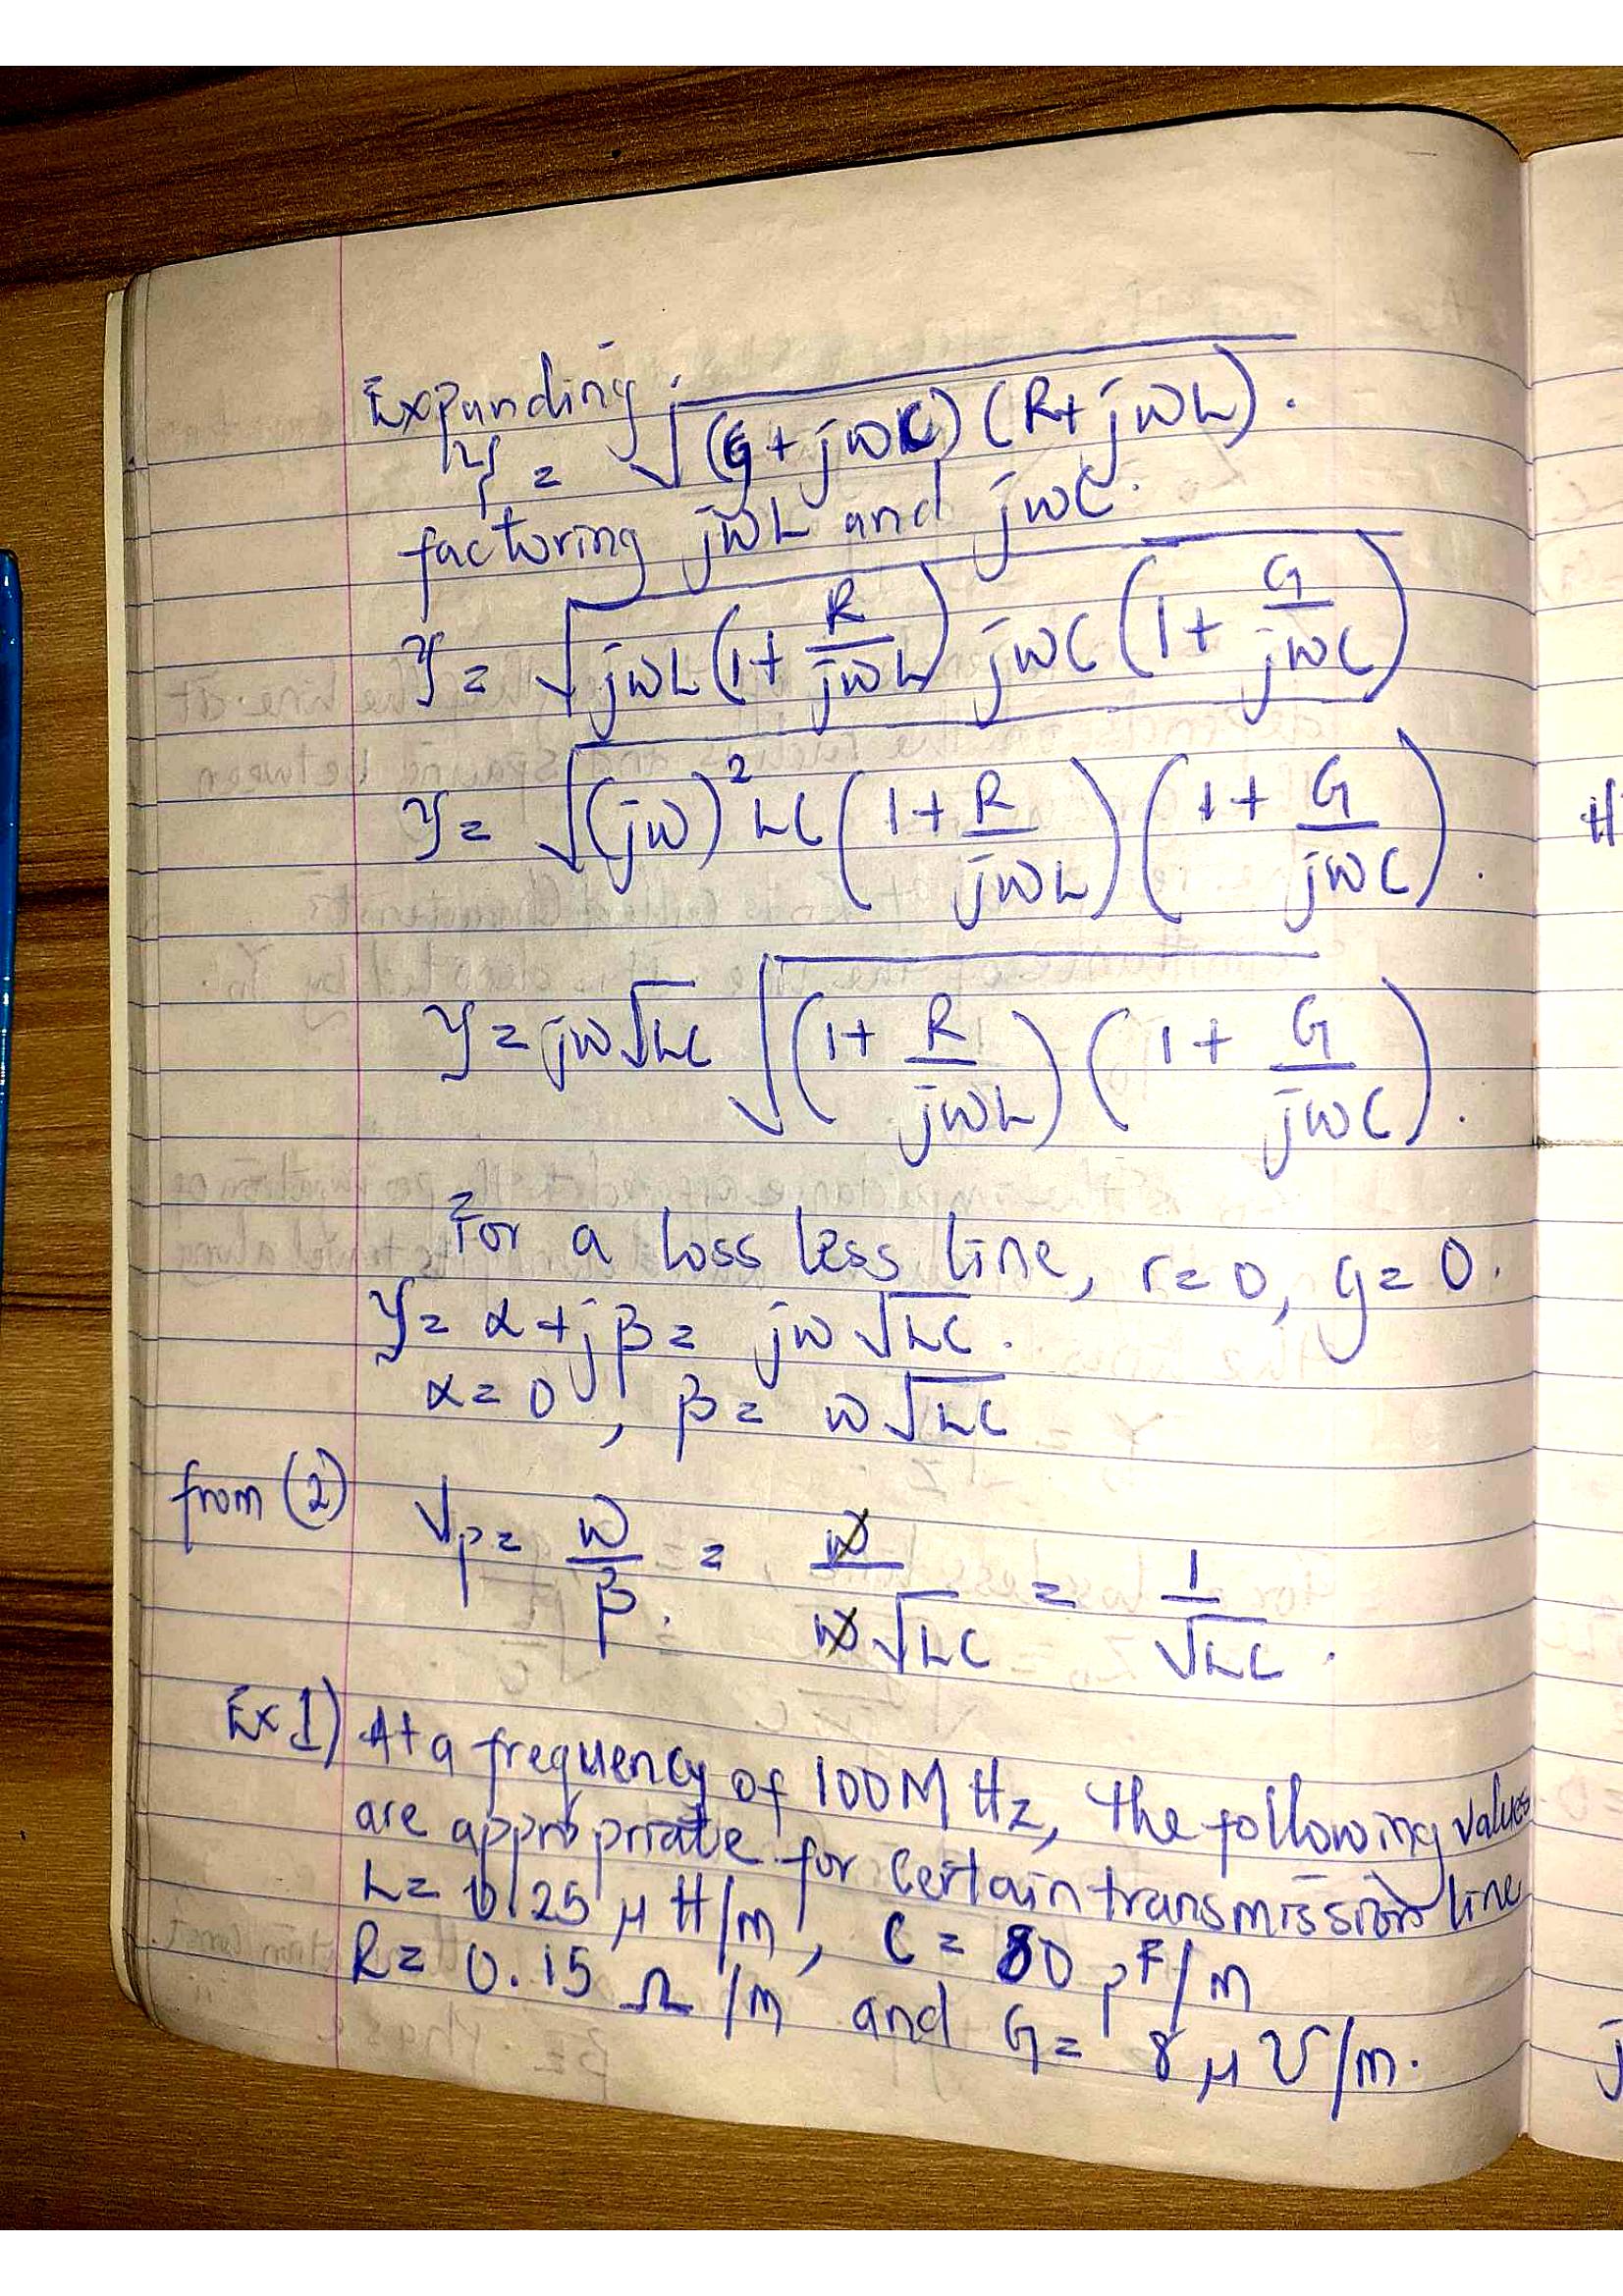 Expanding;
γ = √(G + jωC) (R + jωL).
factoring jωL and jωC.
γ = √jωL(1 + R/jωL) jωC (1 + G/jωC)
γ = √(jω)² LC (1 + R/jωL) (1 + G/jωC).
γ = jω√LC √(1 + R/jωL) (1 + G/jωC).
For a loss less line, r = 0, g = 0.
γ = α + jβ = jω√LC.
α = 0, β = ω√LC
from (2) Vp = ω/β. = ω/ω√LC = 1/√LC.
Ex 1) At a frequency of 100 MHz, the following values
are appropriate for certain transmission line
L = 0.25 μH/m, C = 80 pF/m
R = 0.15 Ω/m and G = 8 μ℧/m.